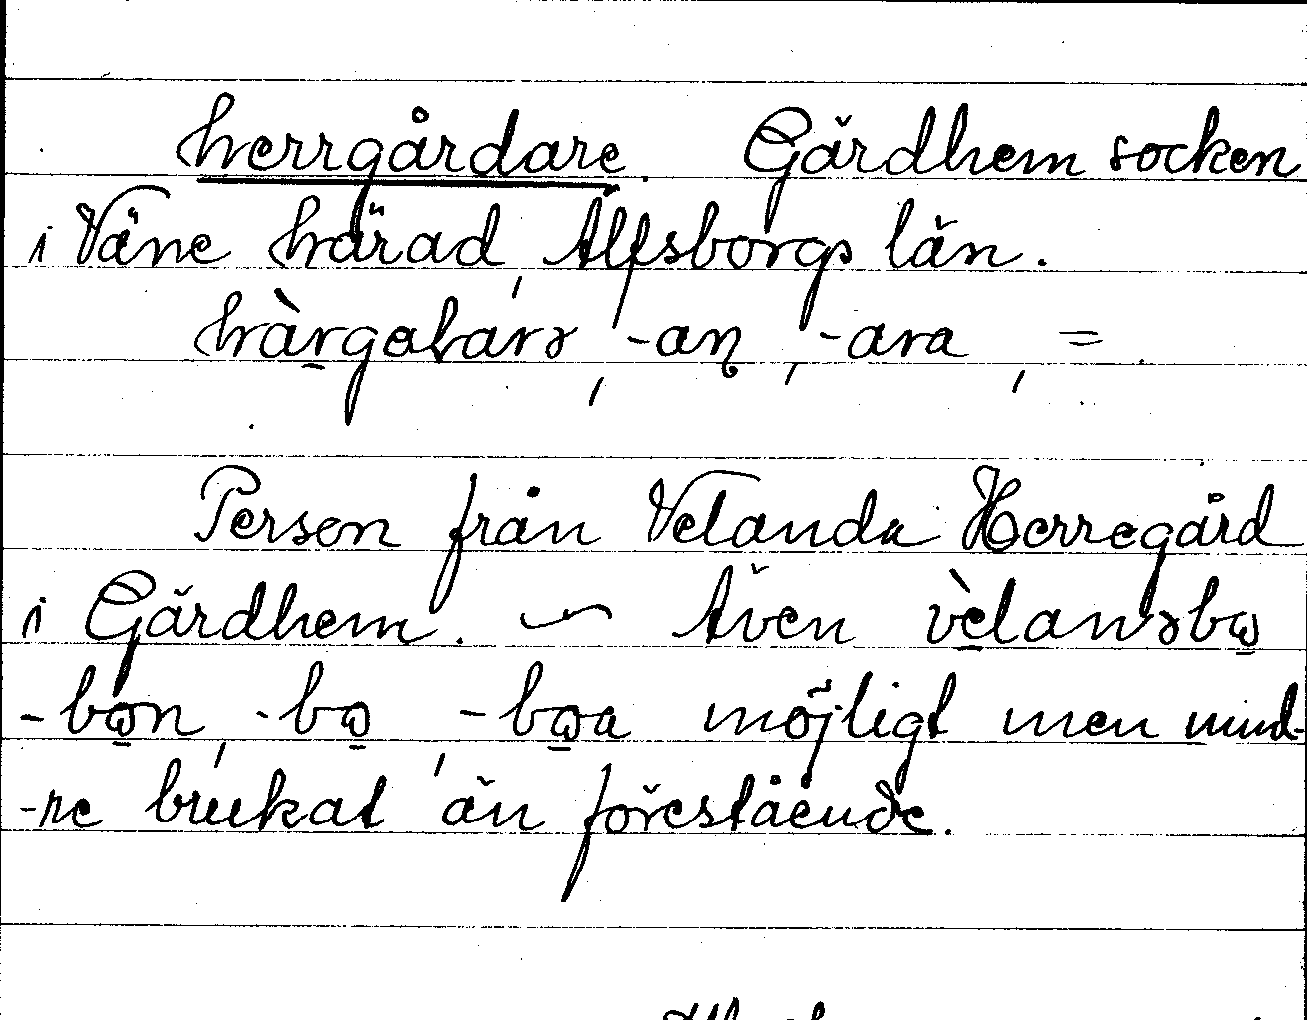 herrgårdare. Gärdhem socken
i Väne härad, Älfsborgs län.
hàrgalarə, -an, -ara, =.
Person från Velanda Herregård
i Gärdhem. — Även vèlanəbo
-bon, -bo, -boa möjligt men mind-
-re brukat än förestående.